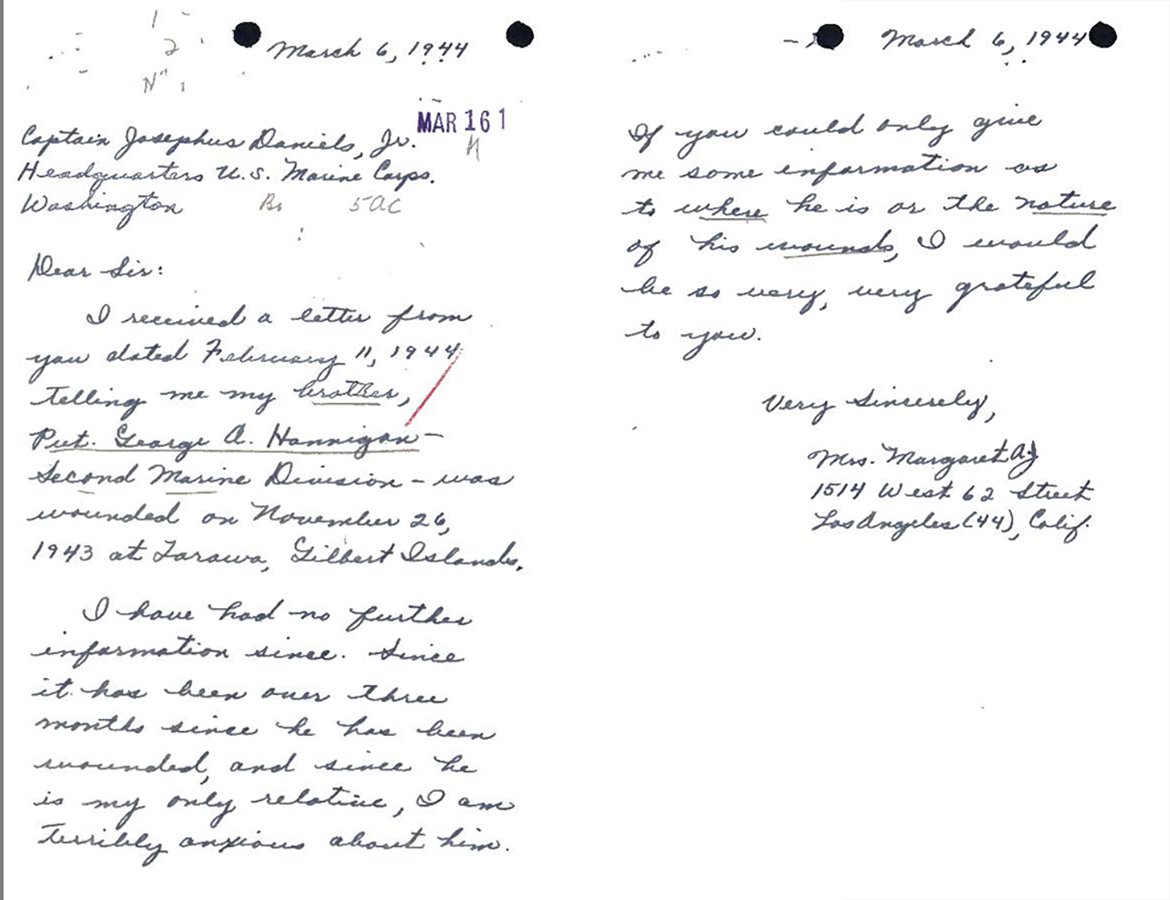 March 6, 1944
MAR 16 1
Captain Josephus Daniels, Jr.
Headquarters U.S. Marine Corps.
Washington
5 AC
Dear Sir:
I received a letter from
you dated February 11, 1944
telling me my brother,
Pvt. George A. Hannigan—
Second Marine Division – was
wounded on November 26,
1943 at Tarawa, Gilbert Islands.
I have had no further
information since. Since
it has been over three
months since he has been
wounded, and since he
is my only relative, I am
terribly anxious about him.
March 6, 1944
If you could only give
me some information as
to where he is or the nature
of his wounds, I would
be so very, very grateful
to you.
Very Sincerely,
Mrs. Margaret
1514 West 62 Street
Los Angeles (44), Calif.